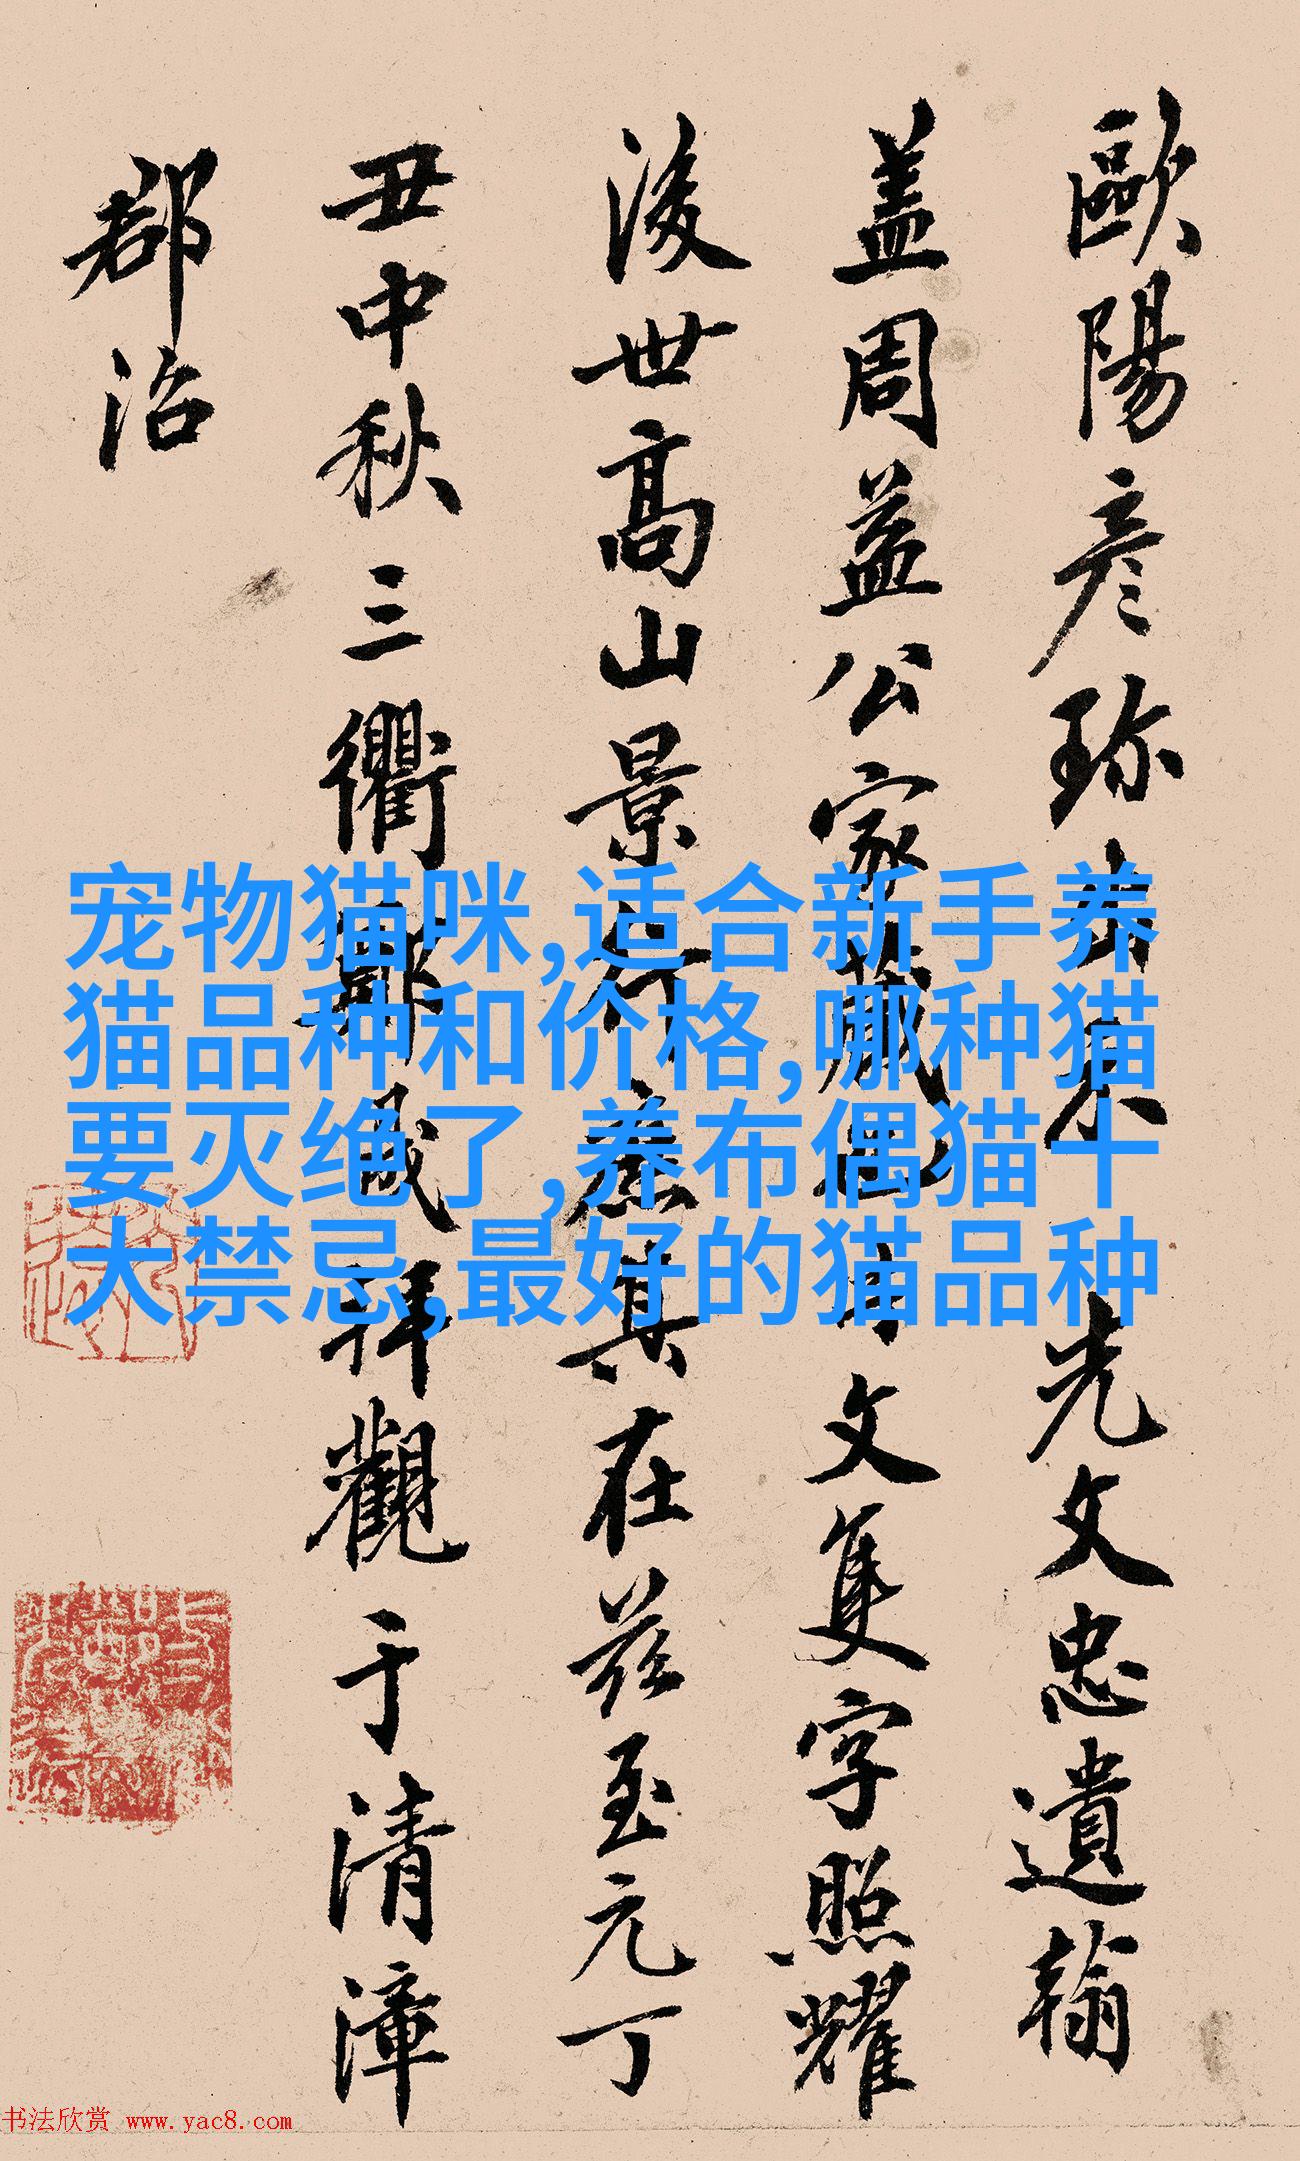 歐陽彦珎出示 光文忠遺翰
盖周益公家藏也 文隻字照耀
後世高山景行 其在茲至元丁
丑中秋三衢 拜觀于清漳
郡治
宠物猫咪,适合新手养
猫品种和价格,哪种猫
要灭绝了,养布偶猫十
大禁忌,最好的猫品种
书法欣赏 www.yac8.com